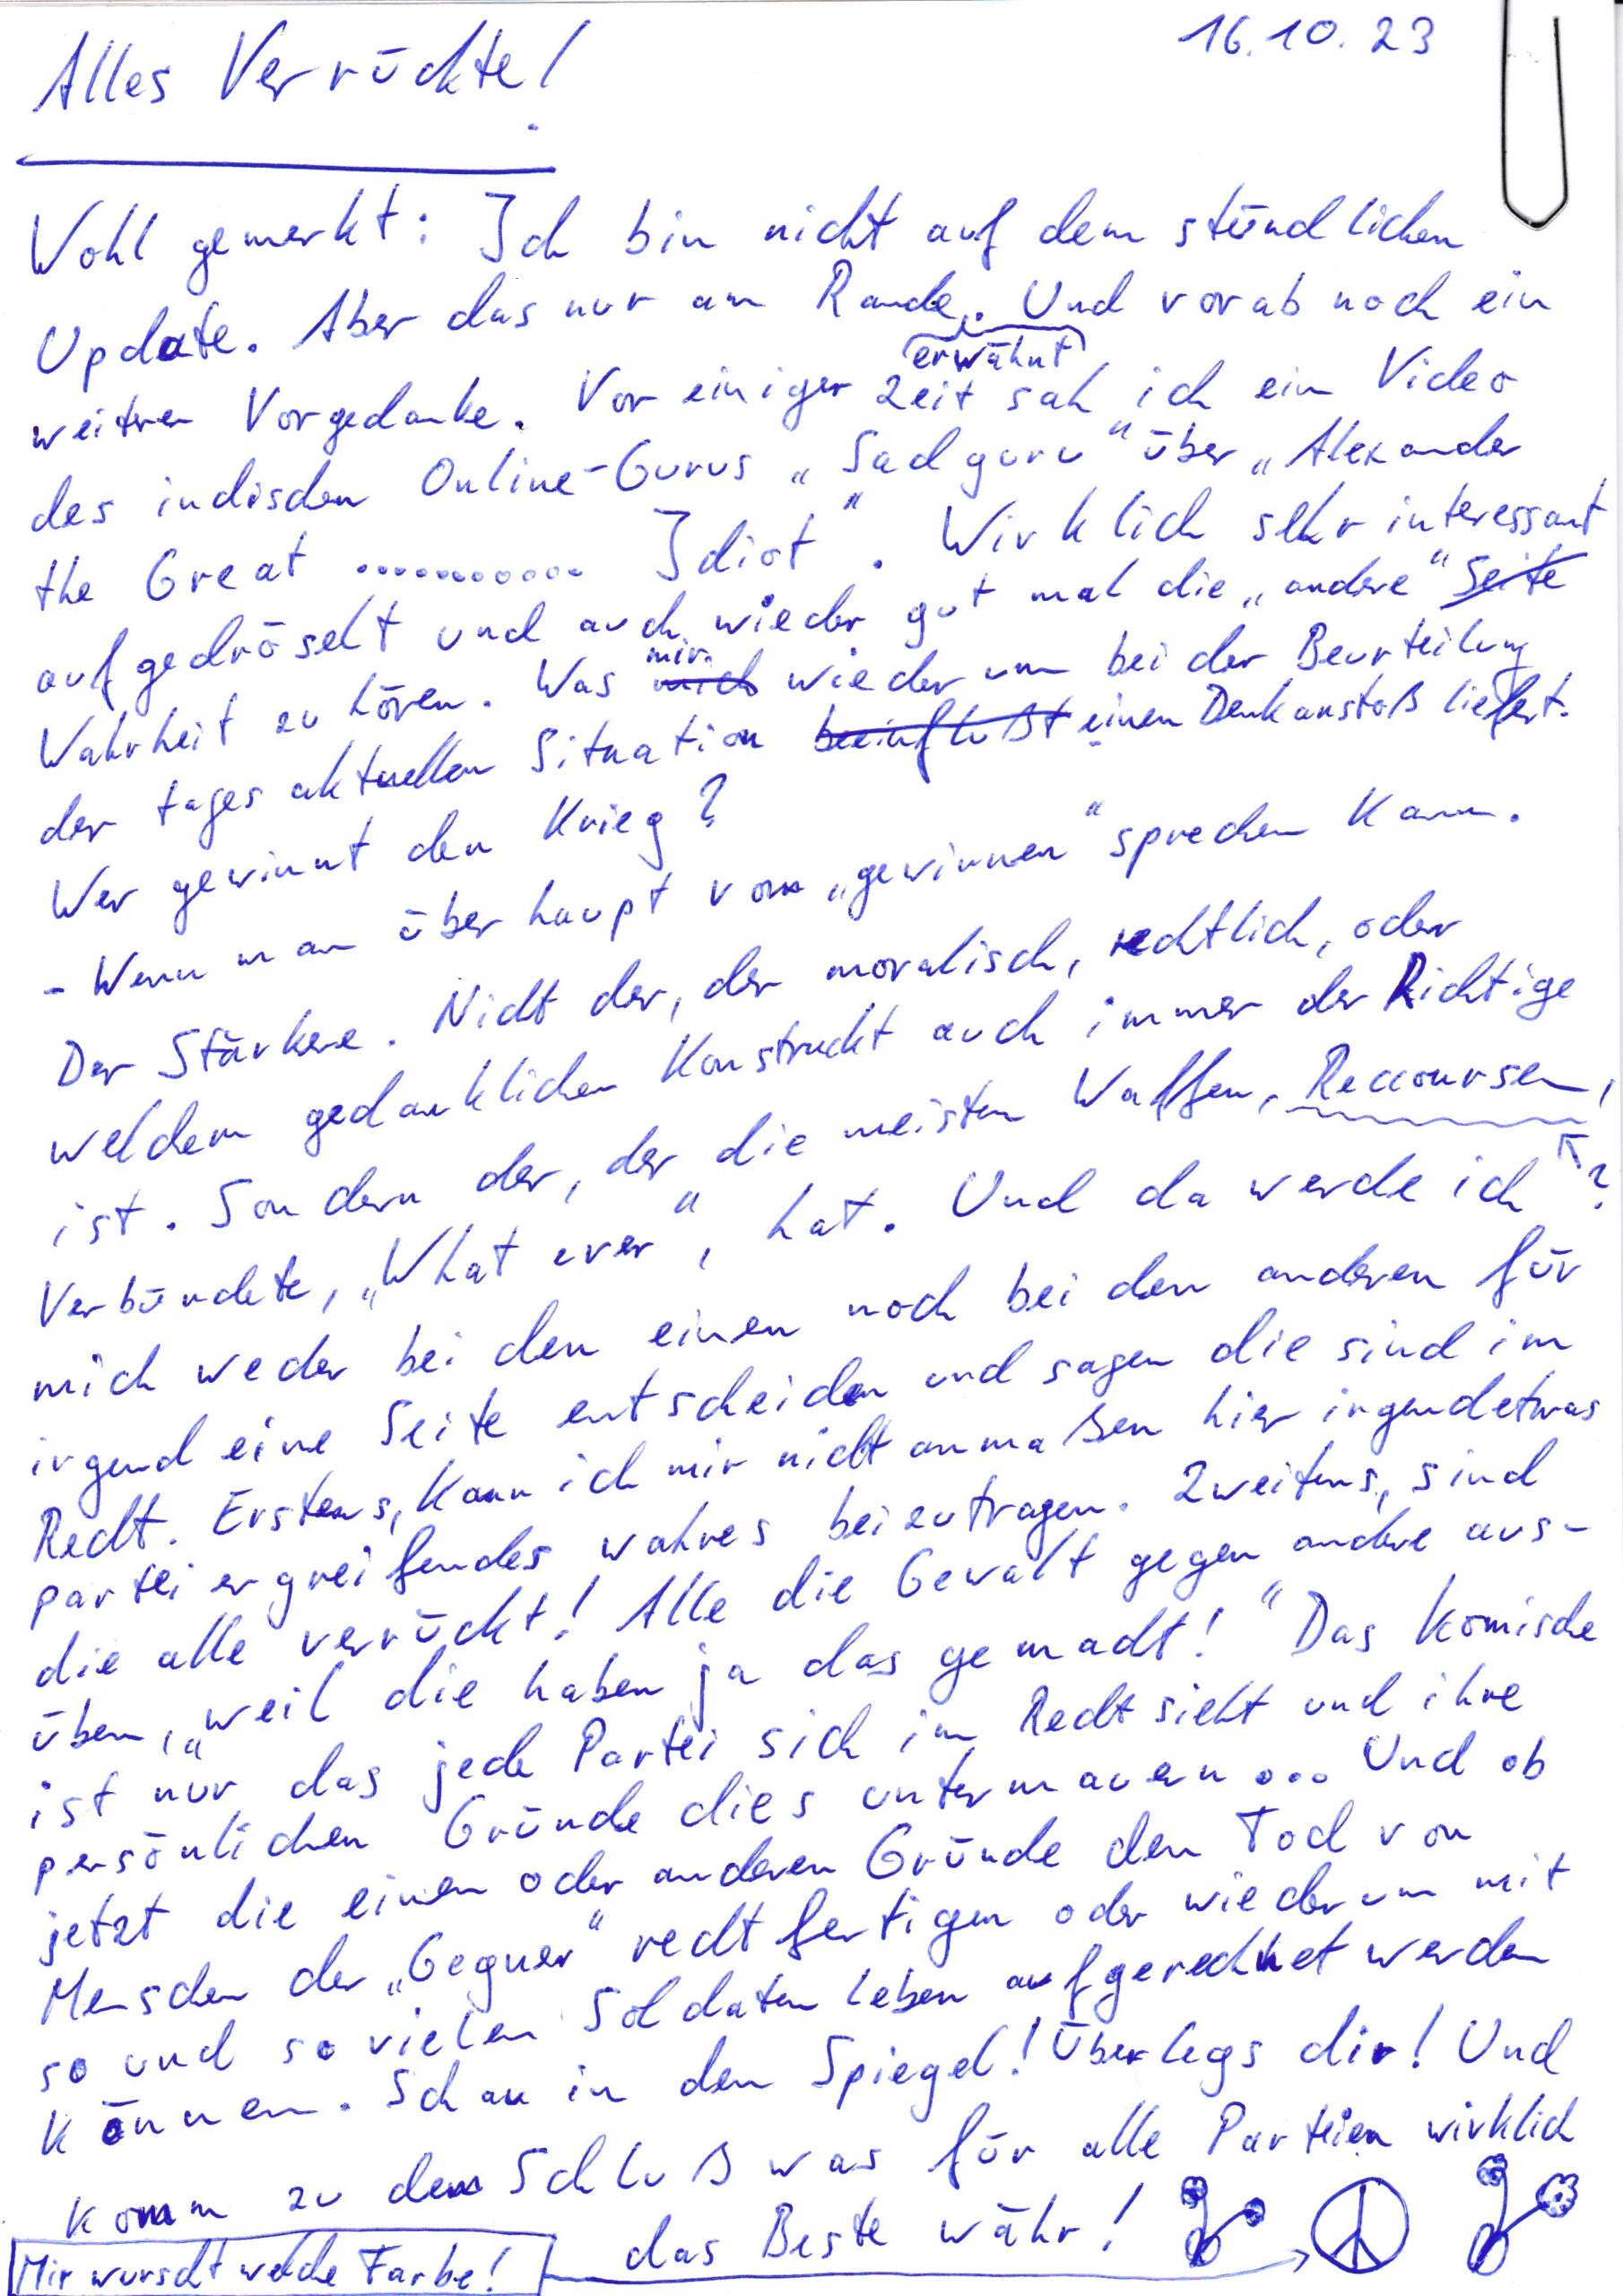 16.10.23
Alles Verrückte!
Wohl gemerkt: Ich bin nicht auf dem stündlichen
Update. Aber das nur am Rande erwähnt. Und vorab noch ein
weitren Vorgedanke. Vor einiger Zeit sah ich ein Video
des indischen Online-Gurus „Sadguru" über „Alexander
the Great ............ Idiot". Wirklich sehr interessant
aufgedröselt und auch wieder gut mal die „andere" Seite
Wahrheit zu hören. Was mich mir wiederum bei der Beurteilung
der tages aktuellen Situation beeinflußt einen Denkanstoß liefert.
Wer gewinnt den Krieg?
- Wenn man überhaupt vom „gewinnen" sprechen kann.
Der Stärkere. Nicht der, der moralisch, rechtlich, oder
welchem gedanklichen Konstruckt auch immer der Richtige
ist. Sondern der, der die meisten Waffen, Reccoursen,
Verbündete, „What ever", hat. Und da werde ich ?
mich weder bei den einen noch bei den anderen für
irgend eine Seite entscheiden und sagen die sind im
Recht. Erstens, kann ich mir nicht anmaßen hier irgendetwas
parteiergreifendes wahres beizutragen. Zweitens, sind
die alle verrückt! Alle die Gewalt gegen andere aus-
üben, „weil die haben ja das gemacht!" Das komische
ist nur das jede Partei sich im Recht sieht und ihre
persönlichen Gründe dies untermauern... Und ob
jetzt die einen oder anderen Gründe den Tod von
Menschen der „Gegner" rechtfertigen oder wiederum mit
so und so vielen Soldaten leben aufgerechnet werden
können. Schau in den Spiegel! Überlegs dir! Und
komm zu dem Schluß was für alle Parteien wirklich
das Beste währ!
Mir wurscht welche Farbe!